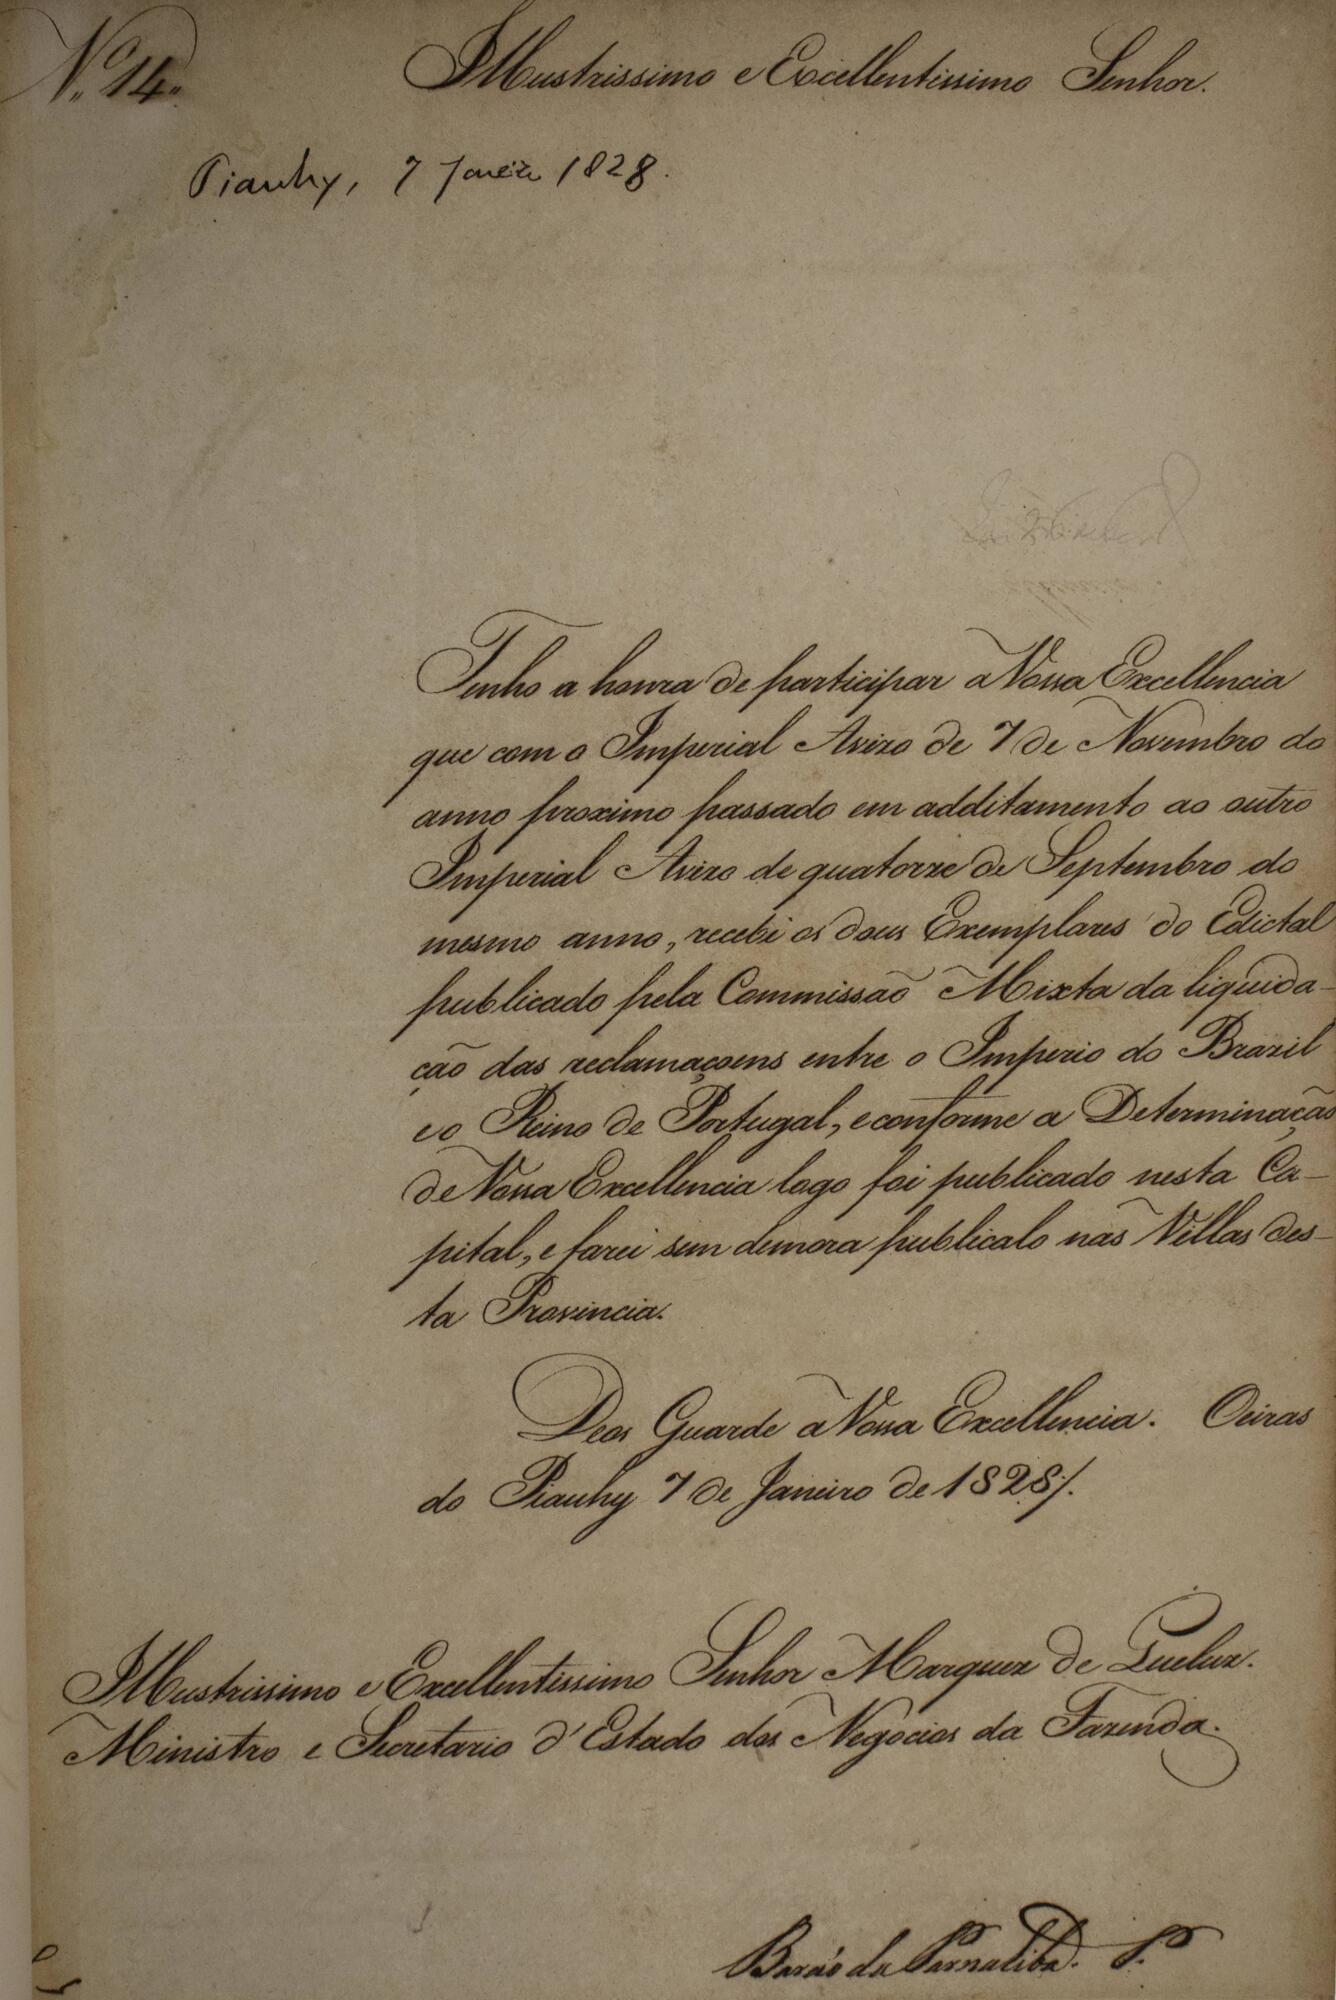 N.º 14.
Illustrissimo e Excellentissimo Senhor.
Piauhy, 7 Janeiro 1828.
Tenho a honra de participar a Vossa Excellencia
que com o Imperial Avizo de 7 de Novembro do
anno proximo passado em additamento ao outro
Imperial Avizo de quatorze de Septembro do
mesmo anno, recebi os dous Exemplares do Edictal
publicado pela Commissaõ Mixta da liquida-
ção das reclamaçoens entre o Imperio do Brazil
e o Reino de Portugal, e conforme a Determinação
de Vossa Excellencia logo foi publicado nesta Ca-
pital, e farei sem demora publicalo nas Villas des-
ta Provincia.
Deos Guarde a Vossa Excellencia. Oeiras
do Piauhy 7 de Janeiro de 1828/.
Illustrissimo e Excellentissimo Senhor Marquez de Queluz.
Ministro e Secretario d'Estado dos Negocios da Fazenda.
Barão da Parnaiba. P.